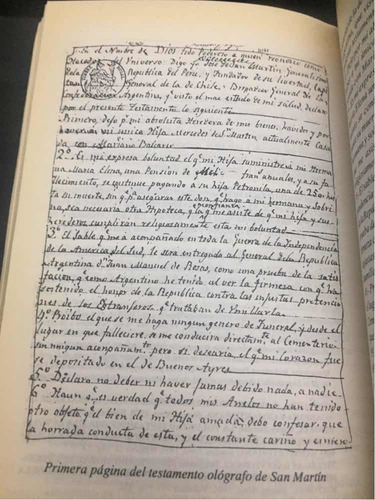 En el Nombre de Dios todo Poderoso a quien reconozco como
Hacedor del Universo: Digo yo José de San Martin, Generalísimo
de la Republica del Peru, y Fundador de su livertad, Capi
General de la de Chile, y Brigadier General de la
Confederacion Argentina, q.e visto el mal estado de mi salud, declaro
por el presente Testamento lo siguiente
Primero, dejo p.r mi absoluta Heredera de mis bienes, havidos y por
haver a mi unica Hija Mercedes de S.n Martin actualmente Casa
da con Mariano Balcarce
2.º Es mi expresa voluntad el q.e mi Hija suministre a mi Herma
na Maria Elena, una Pension de Mil francos anuales, y a su fa
llecimiento, se continue pagando a su hija Petronila, una de 250 has
ta su muerte, sin q.e p.a asegurar este don q.e hago a mi hermana y Sobri
na, sea necesaria otra Hipoteca q.e la confianza q.e me asiste de q.e mi hija y sus
herederos cumplirán religiosamente esta mi voluntad
3.º El sable q.e me a acompañado en toda la Guerra de la Independencia
de la America del Sud, le será entregado al General de la Republica
Argentina D.n Juan Manuel de Rosas, como una prueba de la satis
faccion, q.e como Argentino he tenido al ver la firmeza con q.e ha
sostenido el honor de la Republica contra las injustas pretencio
nes de los Extranjeros q.e trataban de Umillarla.
4.º Prohibo el que se me haga ningun genero de Funeral, y desde el
lugar en que falleciere se me conducirá directam.te al Cementerio
sin ningun acompañam.to pero si desearía el q.e mi Corazon fue
se depositado en el de Buenos Ayres
5.º Declaro no deber ni haver jamas debido nada, a nadie.
6.º Haun q.e es verdad q.e todos mis Anelos no han tenido
otro objeto q.e el bien de mi Hija amada, debo confesar, que
la honrada conducta de esta, y el constante cariño y esmero
Primera página del testamento ológrafo de San Martín